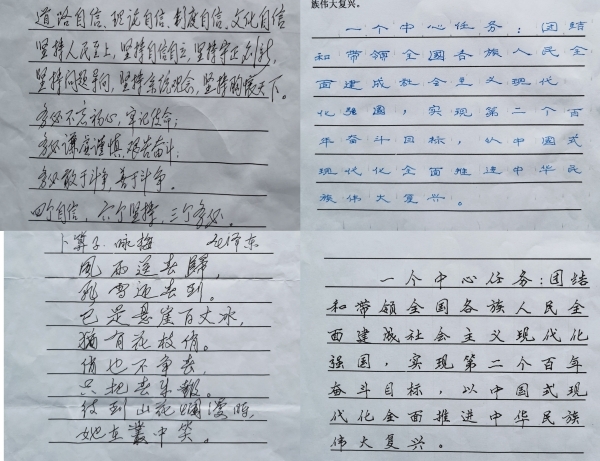 道路自信、理论自信、制度自信、文化自信
坚持人民至上,坚持自信自立,坚持守正创新,
坚持问题导向,坚持系统观念,坚持胸怀天下。
务必不忘初心、牢记使命;
务必谦虚谨慎、艰苦奋斗;
务必敢于斗争、善于斗争。
四个自信,六个坚持,三个务必。
族伟大复兴。
一个中心任务:团结
和带领全国各族人民全
面建成社会主义现代
化强国,实现第二个百
年奋斗目标,以中国式
现代化全面推进中华民
族伟大复兴。
卜算子 咏梅 毛泽东
風雨送春歸,
飛雪迎春到。
已是悬崖百丈冰,
犹有花枝俏。
俏也不争春,
只把春来報。
待到山花爛漫時,
她在叢中笑。
一个中心任务:团结
和带领全国各族人民全
面建成社会主义现代化
强国,实现第二个百年
奋斗目标,以中国式现
代化全面推进中华民族
伟大复兴。